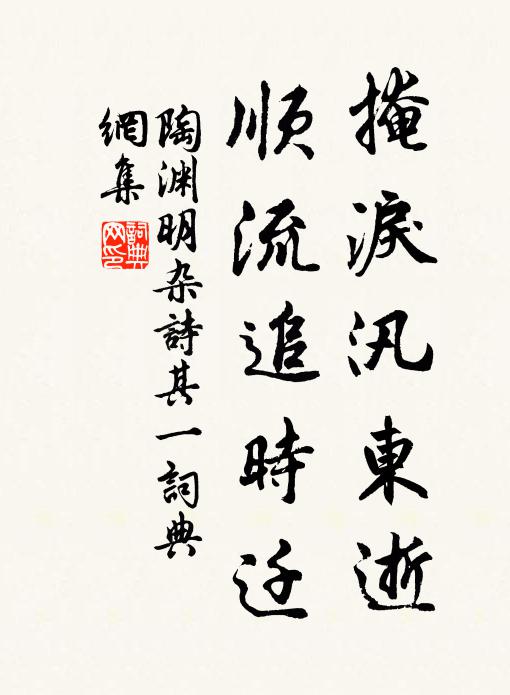 掩淚汎東逝
順流追時迁
陶渊明杂詩其一 詞典
網集
詞典
网印